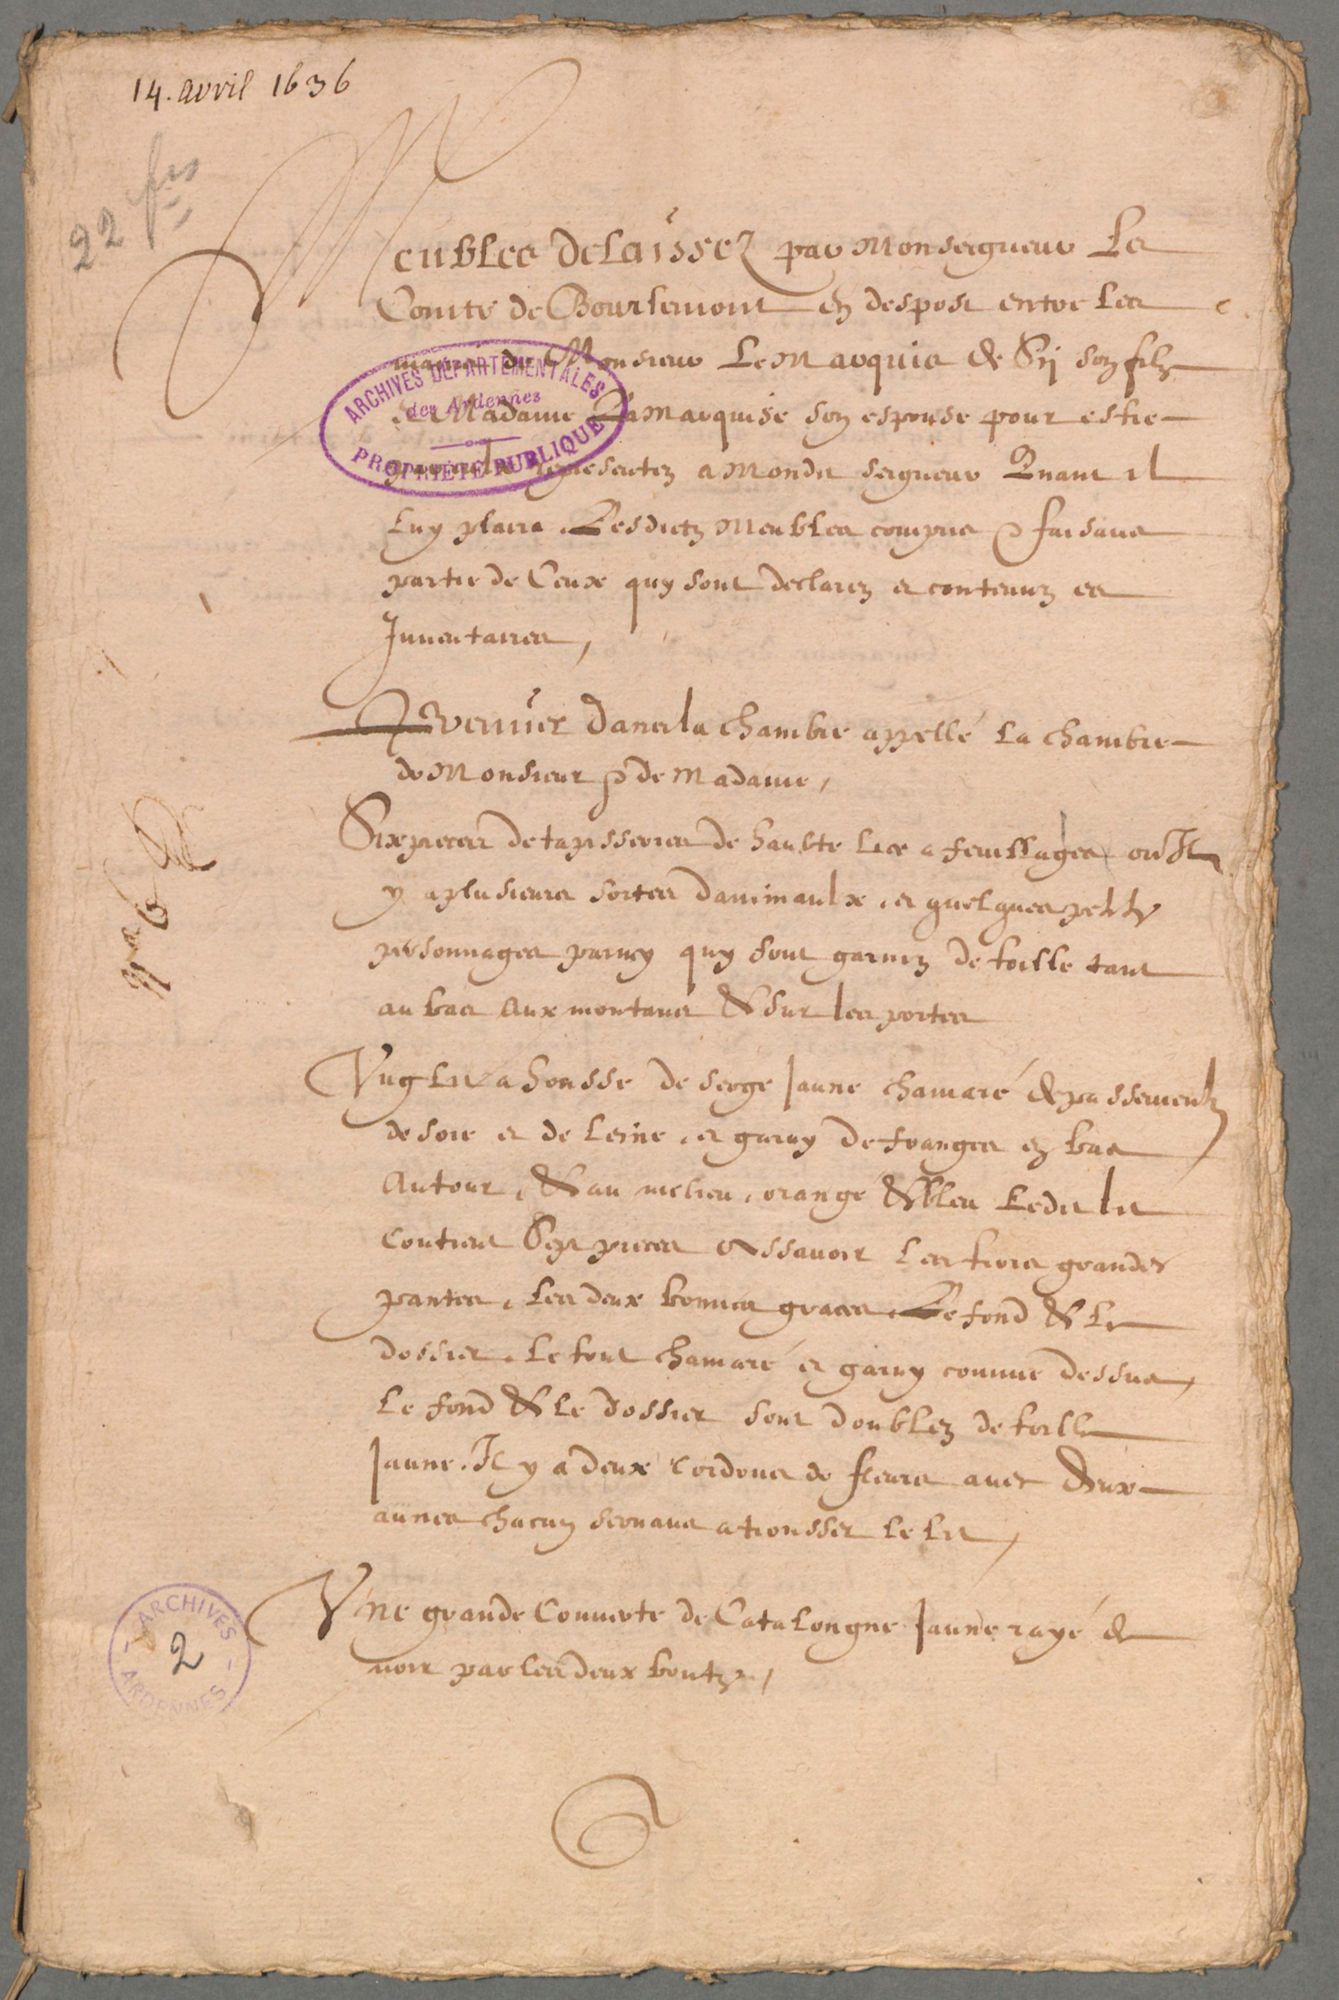 14. avril 1636
22 fns
Meubles delaissez par Monseigneur Le
Comte de Bourlemont en depost entre Les
mains de Monsieur Le Marquis de Sy son filz
& Madame La Marquise son espouse pour estre
representez a Mondit seigneur Quant il
luy plaira. Lesdictz Meubles compris & faisans
partie de Ceux quy sont declarez et contenuz es
Inventaires,
Premier Dans la chambre appellé La chambre
de Monsieur & de Madame,
Six pieces de tapisseries de haulte lice a feuillages ou Il
y a plusieurs sortes d'animaulx, et quelques petitz
personnages parmy quy sont garniz de toille tant
au bas Aux montans & sur les portes
Ung Lit a housse de serge Jaune chamaré de passementz
de soie et de leine, et garny de franges en bas
Autour, & au melieu, orange & bleu Ledit lit
contient Sept pieces Assavoir Les trois grandes
pantes, Les deux bonnes graces, Le fond & Le
dossier, Le tout chamaré et garny comme dessus,
Le fond & Le dossier sont doublez de toille
Jaune, Il y a deux Cordons de fleurs avec deux
aunes chacun servans a trousser Le Lit,
Une grande Couverte de Catalongne Jaune rayé de
noir par les deux boutz,
ARCHIVES DÉPARTEMENTALES
des Ardennes
PROPRIÉTÉ PUBLIQUE
ARCHIVES
2
ARDENNES